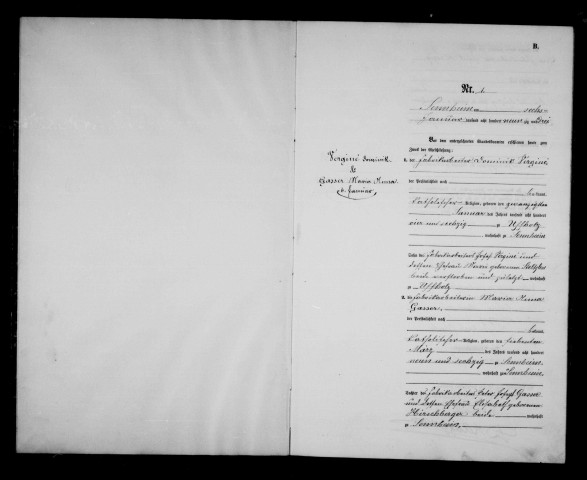 B.
Nr. 1.
Sennheim am sechs-
Januar tausend acht hundert neun zig und drei
Vor dem unterzeichneten Standesbeamten erschienen heute zum
Zweck der Eheschließung:
1. der Fabrikarbeiter Dominik Vergine
der Persönlichkeit nach
kannt,
katholischer Religion, geboren den zwanzigsten
Januar des Jahres tausend acht hundert
vier und sechzig zu Uffholz
wohnhaft in Sennheim
Sohn des Fabrikarbeiters Josef Vergine und
dessen Ehefrau geborenen
beide verstorben und zuletzt wohnhaft
in Uffholz
2. die Fabrikarbeiterin Maria Anna
Gasser,
der Persönlichkeit nach
kannt,
katholischer Religion, geboren den siebenten
März des Jahres tausend acht hundert
neun und sechzig zu Sennheim,
wohnhaft zu Sennheim,
Tochter des Fabrikarbeiters Josef Gasser
und dessen Ehefrau Elisabeth geborenen
Hirschberger beide wohnhaft
in Sennheim.
Vergine Dominik
&
Gasser Maria Anna
6. Januar